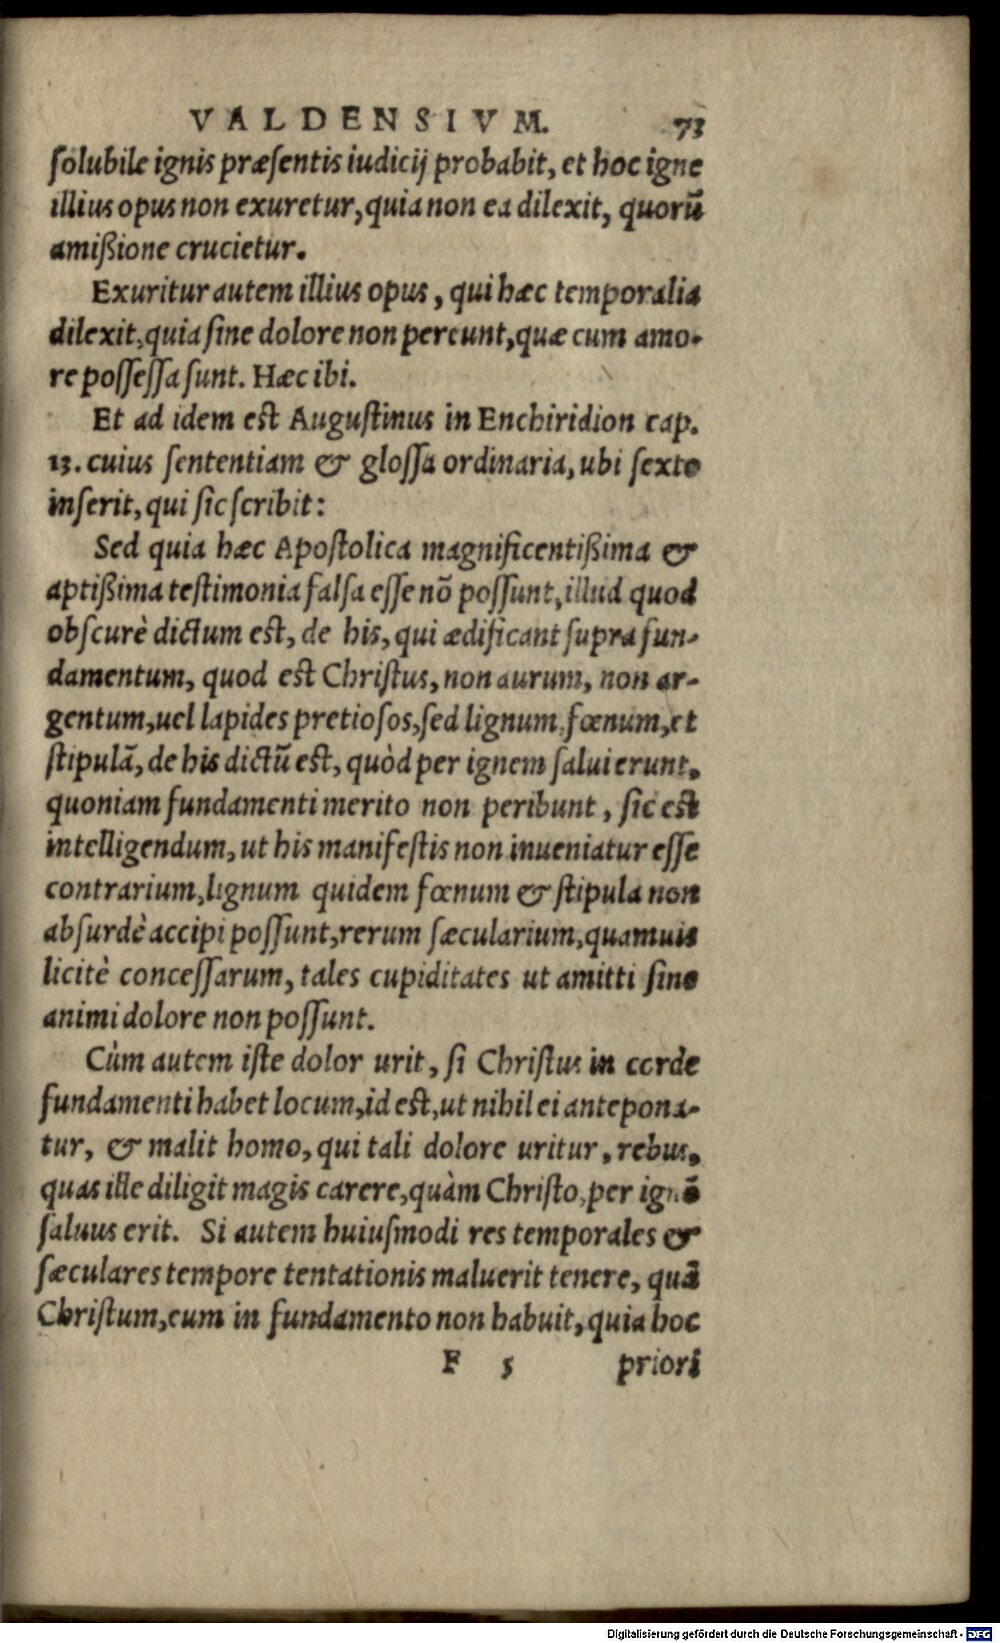 VALDENSIVM. 73
solubile ignis præsentis iudicij probabit, et hoc igne
illius opus non exuretur, quia non ea dilexit, quorũ
amißione crucietur.
Exuritur autem illius opus, qui hæc temporalia
dilexit, quia sine dolore non pereunt, quæ cum amo-
re possessa sunt. Hæc ibi.
Et ad idem est Augustinus in Enchiridion cap.
13. cuius sententiam & glossa ordinaria, ubi sexto
inserit, qui sic scribit:
Sed quia hæc Apostolica magnificentißima &
aptißima testimonia falsa esse nõ possunt, illud quod
obscurè dictum est, de his, qui ædificant supra fun-
damentum, quod est Christus, non aurum, non ar-
gentum, uel lapides pretiosos, sed lignum, fœnum, et
stipulã, de his dictũ est, quòd per ignem saluierunt.
quoniam fundamenti merito non peribunt, sic est
intelligendum, ut his manifestis non inueniatur esse
contrarium, lignum quidem fœnum & stipula non
absurdè accipi possunt, rerum sæcularium, quamuis
licitè concessarum, tales cupiditates ut amitti sine
animi dolore non possunt.
Cùm autem iste dolor urit, si Christus in corde
fundamenti habet locum, id est, ut nihil ei antepona-
tur, & malit homo, qui tali dolore uritur, rebus,
quas ille diligit magis carere, quàm Christo, per ignẽ
saluus erit. Si autem huiusmodi res temporales &
sæculares tempore tentationis maluerit tenere, quã
Christum, eum in fundamento non habuit, quia hoc
F 5 priori
Digitalisierung gefördert durch die Deutsche Forschungsgemeinschaft - DFG